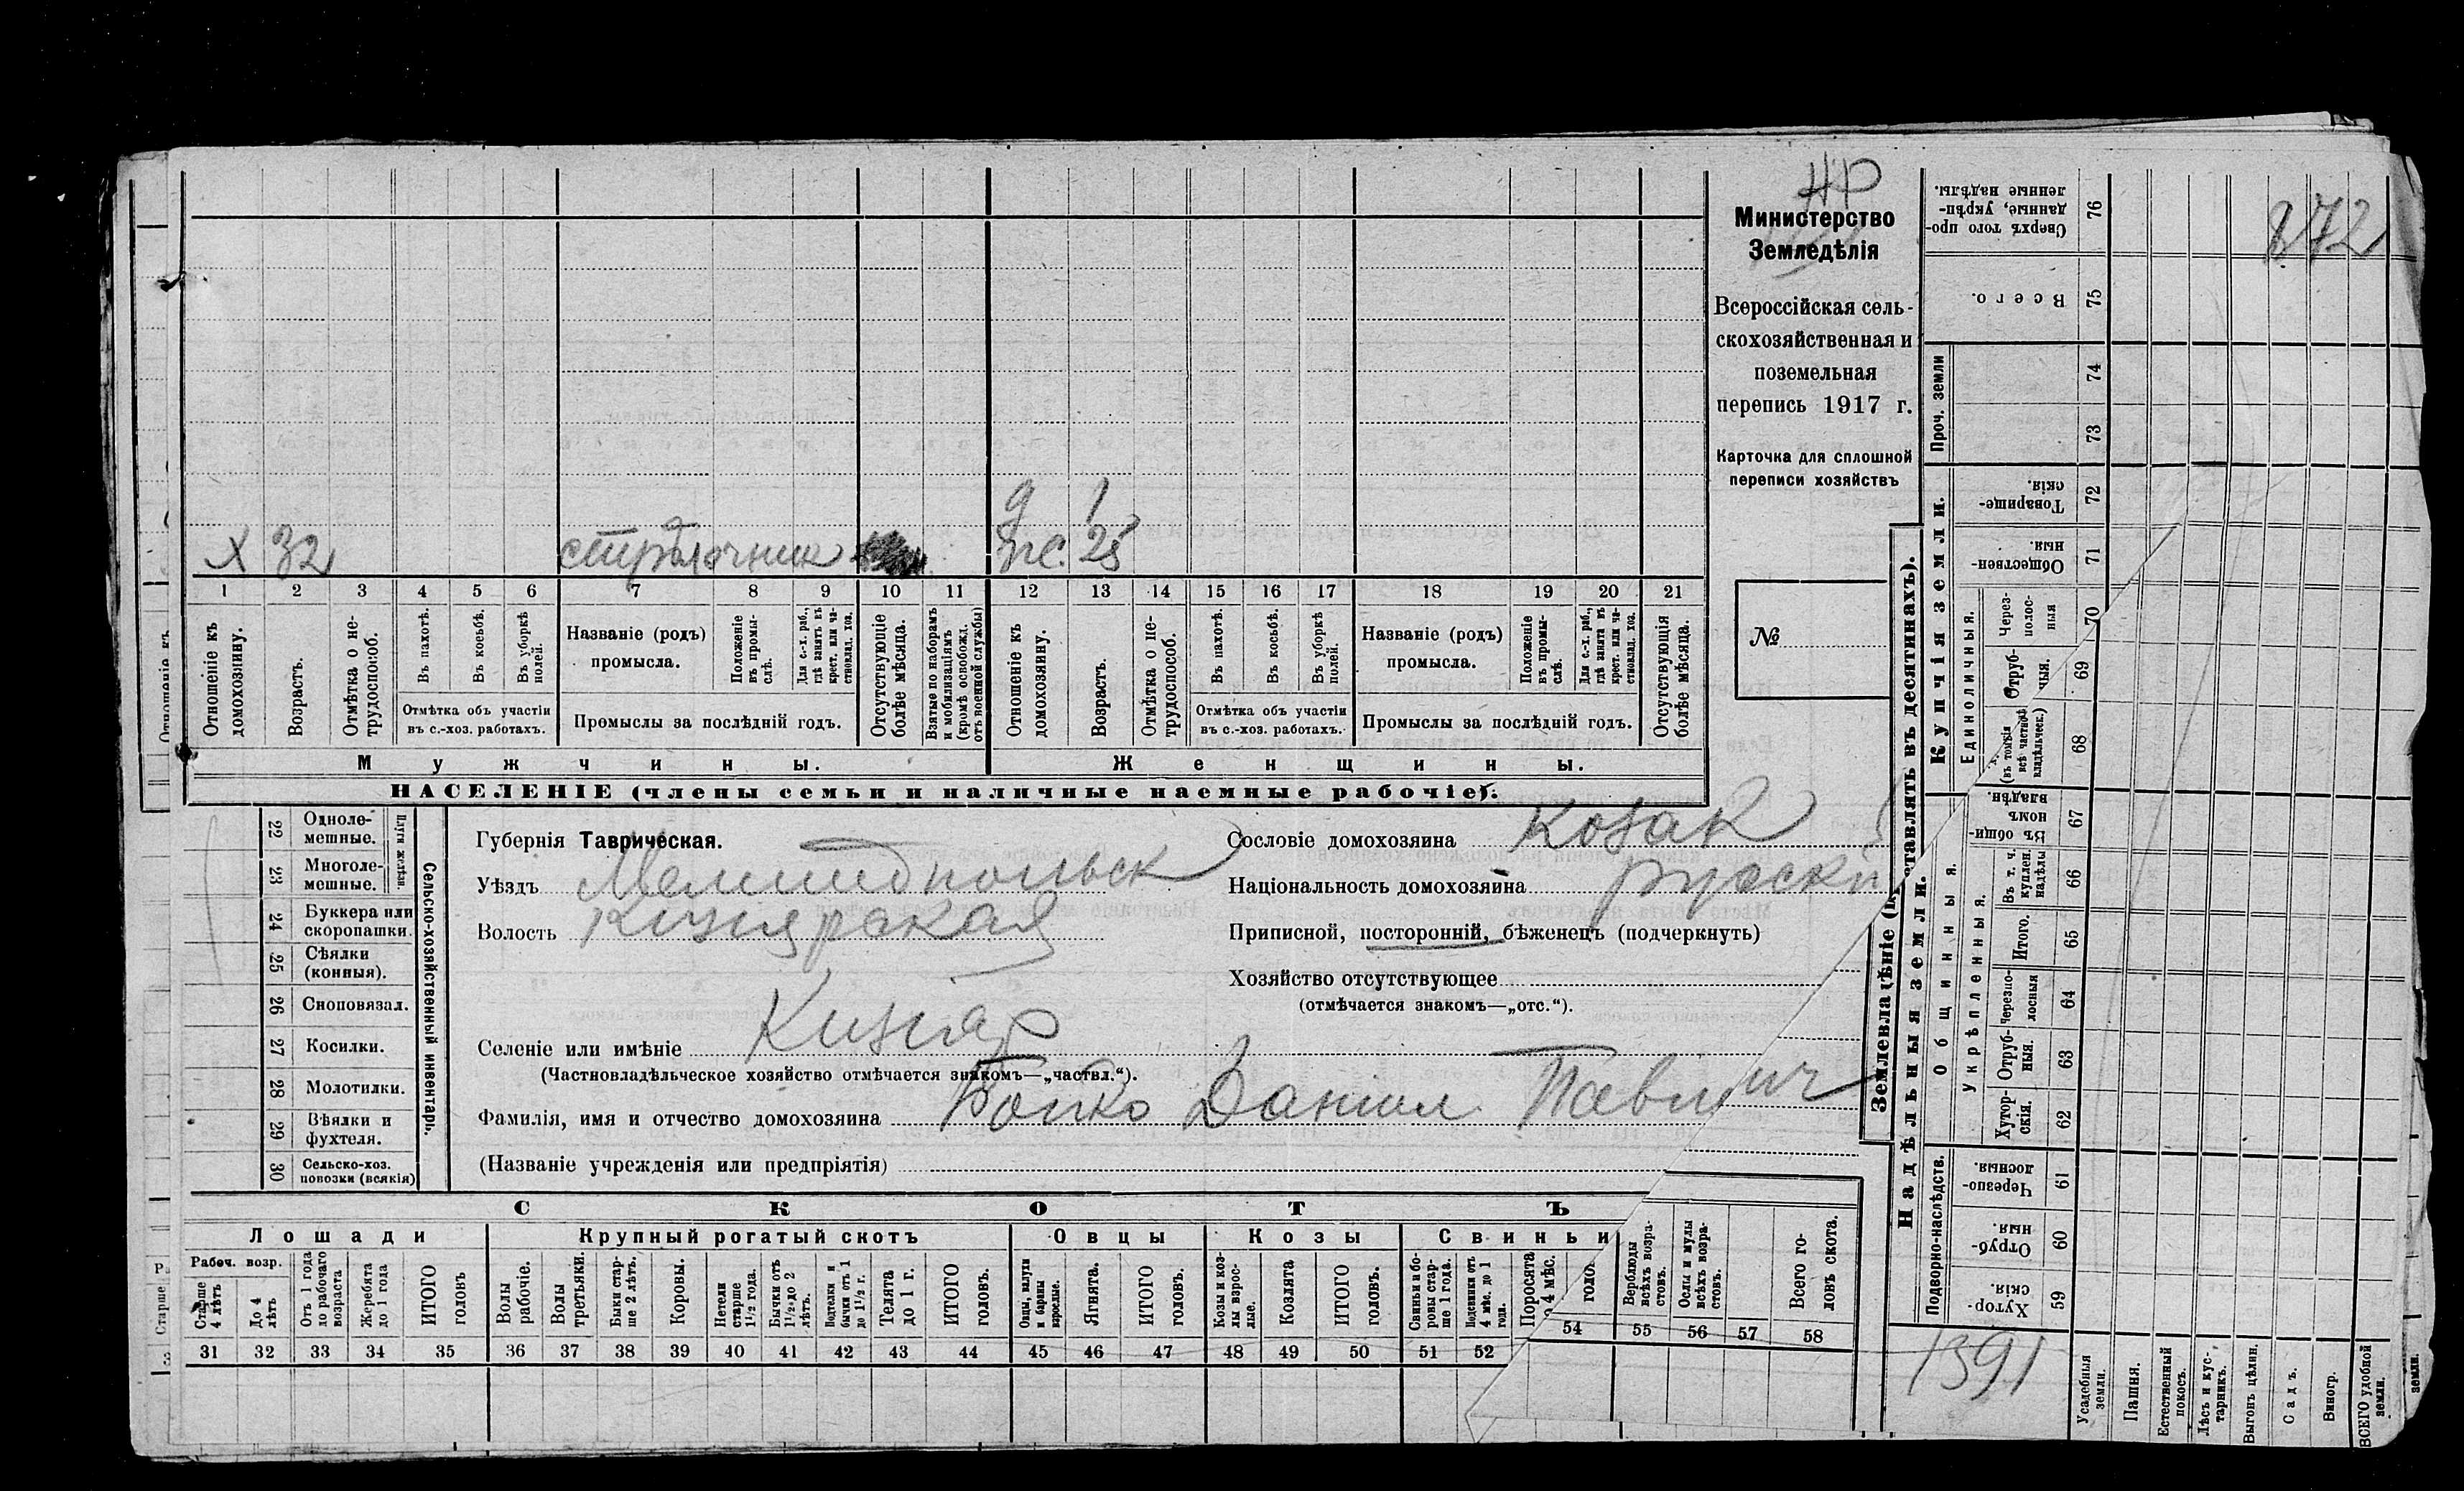 НР
872
Министерство
Земледѣлія
Всероссійская сель-
скохозяйственная и
поземельная
перепись 1917 г.
Карточка для сплошной
переписи хозяйствъ
№
д 1
х 32 стрѣлочник ж. 25
1 2 3 4 5 6 7 8 9 10 11 12 13 14 15 16 17 18 19 20 21
Отношеніе къ домохозяину.
Возрастъ.
Отмѣтка о не-трудоспособ.
Въ пахотѣ.
Въ косьбѣ.
Въ уборкѣ полей.
Отмѣтка объ участіи
въ с.-хоз. работахъ.
Названіе (родъ)
промысла.
Положеніе въ промы-слѣ.
Для с.-х. раб., гдѣ занятъ въ крест. или ча-стновлад. хоз.
Промыслы за послѣдній годъ.
Отсутствующіе болѣе мѣсяца.
Взятые по наборамъ и мобилизаціямъ (кромѣ освобожд. отъ военной службы)
Отношеніе къ домохозяину.
Возрастъ.
Отмѣтка о не-трудоспособ.
Въ пахотѣ.
Въ косьбѣ.
Въ уборкѣ полей.
Отмѣтка объ участіи
въ с.-хоз. работахъ.
Названіе (родъ)
промысла.
Положеніе въ промы-слѣ.
Для с.-х. раб., гдѣ занята въ крест. или ча-стновлад. хоз.
Промыслы за послѣдній годъ.
Отсутствующія болѣе мѣсяца.
Мужчины. Женщины.
НАСЕЛЕНІЕ (члены семьи и наличные наемные рабочіе).
22 Одноле-мешные.
23 Многоле-мешные.
Плуги желѣзн.
24 Буккера или скоропашки.
25 Сѣялки (конныя).
26 Сноповязал.
27 Косилки.
28 Молотилки.
29 Вѣялки и фухтеля.
30 Сельско-хоз. повозки (всякія)
Сельско-хозяйственный инвентарь.
Губернія Таврическая.
Уѣздъ Мелитопольск
Волость Кизіярская
Селеніе или имѣніе Кизіяр
(Частновладѣльческое хозяйство отмѣчается знакомъ—„частвл.“).
Фамилія, имя и отчество домохозяина Бойко Данiил Павлич
(Названіе учрежденія или предпріятія)
Сословіе домохозяина Козак
Національность домохозяина Рускій
Приписной, посторонній, бѣженецъ (подчеркнуть)
Хозяйство отсутствующее
(отмѣчается знакомъ—„отс.“).
СКОТЪ
Лошади Крупный рогатый скотъ Овцы Козы Свиньи
Рабоч. возр.
Старше 4 лѣтъ
До 4 лѣтъ
Отъ 1 года до рабочаго возраста
Жеребята до 1 года
ИТОГО головъ
Волы рабочіе.
Волы третьяки.
Быки стар-ше 2 лѣтъ.
Коровы.
Нетели старше 1½ года.
Бычки отъ 1½ до 2 лѣтъ.
Подтелки и бычки отъ 1 до 1½ г.
Телята до 1 г.
ИТОГО головъ.
Овцы, валухи и бараны взрослые.
Ягнята.
ИТОГО головъ.
Козы и коз-лы взрос-лые.
Козлята
ИТОГО головъ.
Свиньи и бо-ровы стар-ше 1 года.
Подсвинки отъ 4 мѣс. до 1 года.
Поросята
4 мѣс.
Верблюды всѣхъ возра-стовъ.
Ослы и мулы всѣхъ возра-стовъ.
Всего го-ловъ скота.
31 32 33 34 35 36 37 38 39 40 41 42 43 44 45 46 47 48 49 50 51 52 54 55 56 57 58
Надѣльныя земли. Купчія земли.
Общинныя.
Укрѣпленныя.
Единоличныя.
Проч. земли
Подворно-наслѣдств.
Сверхъ того про-данные, укрѣп-ленные надѣлы. 76
Всего. 75
74
73
Товарище-скія. 72
Обществен-ныя. 71
Через-полос-ныя 70
Отруб-ныя. 69
(въ томъ числѣ всѣ частно-владѣльческ.) 68
Въ общи-номъ владѣн. 67
Въ т. ч. куплен. надѣлы 66
Итого. 65
Черезпо-лосныя 64
Отруб-ныя. 63
Хутор-скія. 62
Черезпо-лосныя. 61
Отруб-ныя. 60
Хутор-скія. 59
1391
Усадебныя земли.
Пашня.
Естественный покосъ.
Лѣсъ и кус-тарникъ.
Выгонъ цѣлин.
Садъ.
Виногр.
ВСЕГО удобной земли.